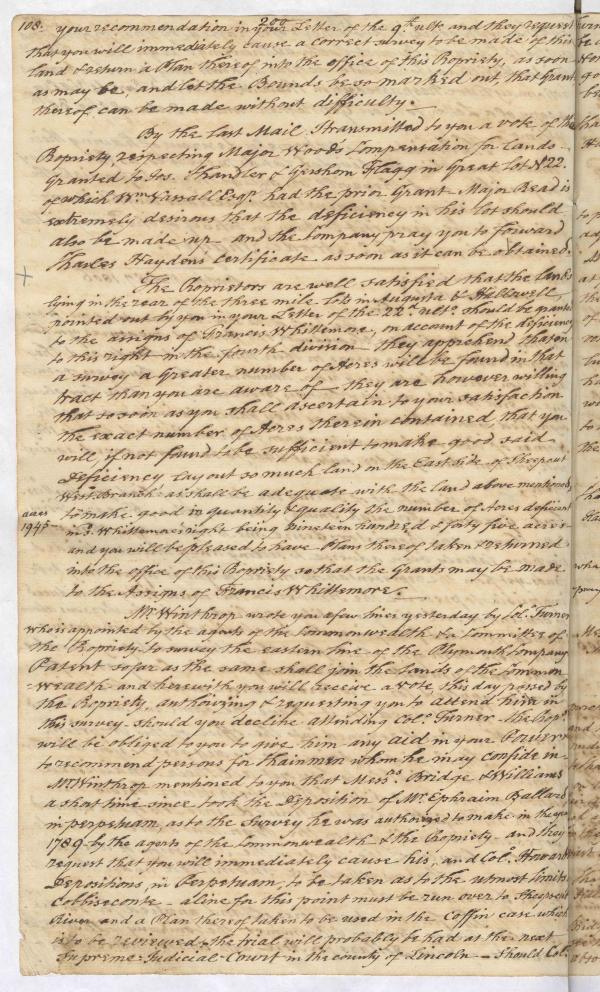 108.
200
your recommendation in your Letter of the 9th ulto and they request
that you will immediately cause a correct survey to be made of this
land & return a Plan thereof into the office of this Propriety, as soon
as may be, and let the Bounds be so marked out, that Grant
thereof can be made without difficulty.
By the last Mail I transmitted to you a vote of the
Propriety respecting Major Woods Compensation for Lands
Granted to Jos. Chandler & Gershom Flagg in Great Lot N 22.
of which Wm Vassall Esqr. had the prior Grant Major Bead is
extremely desirous that the deficiency in his lot should
also be made up and the Company pray you to forward
Charles Haydens Certificate as soon as it can be obtained.
The Proprietors are well satisfied that the lands
lying in the rear of the three mile lots in Augusta & Hallowell
pointed out by you in your Letter of the 22d ulto. should be granted
to the assigns of Francis Whittemore, on account of the deficiency
to this right in the fourth division they apprehend that on
a survey a Greater number of Acres will be found in that
tract than you are aware of they are however willing
that so soon as you shall ascertain to your satisfaction
the exact number of Acres therein contained, that you
will if not found to be sufficient to make good said
Deficiency lay out so much land on the East side of Sheepscut
West Branch as shall be adequate with the land above mentioned
to make good in quantity & quality the number of Acres deficient
acres
1945
in sd. Whittemores right being Nineteen hundred & forty five acres
and you will be pleased to have Plans thereof taken & returned
into the office of this Propriety so that the Grants may be made
to the Assigns of Francis Whittemore.
Mr. Winthrop wrote you a few lines yesterday by Col. Turner
who is appointed by the agents of the Commonwealth & a Committee of
the Propriety to survey the eastern line of the Plymouth Company
Patent so far as the same shall join the Lands of the Common
=wealth and herewith you will receive a vote this day passed by
the Propriety, authorizing & requesting you to attend him in
this survey should you decline attending Colo. Turner the Propy.
will be obliged to you to give him any aid in your Power &
to recommend persons for Chainmen whom he may confide in
Mr Winthrop mentioned to you that Messrs. Bridge & Williams
a short time since took the Deposition of Mr. Ephraim Ballard
in perpetuam, as to the Survey he was authorized to make in the year
1789 by the agents of the Commonwealth & the Propriety and they
request that you will immediately cause his, and Colo. Howard
Depositions, in Perpetuam, to be taken as to the utmost limits
Cobbiseconte a line for this point must be run over to Sheepscut
River and a Plan thereof taken to be used in the Coffin case which
is to be reviewed & the trial will probably be had at the next
Supreme Judicial Court in the county of Lincoln Should Col.